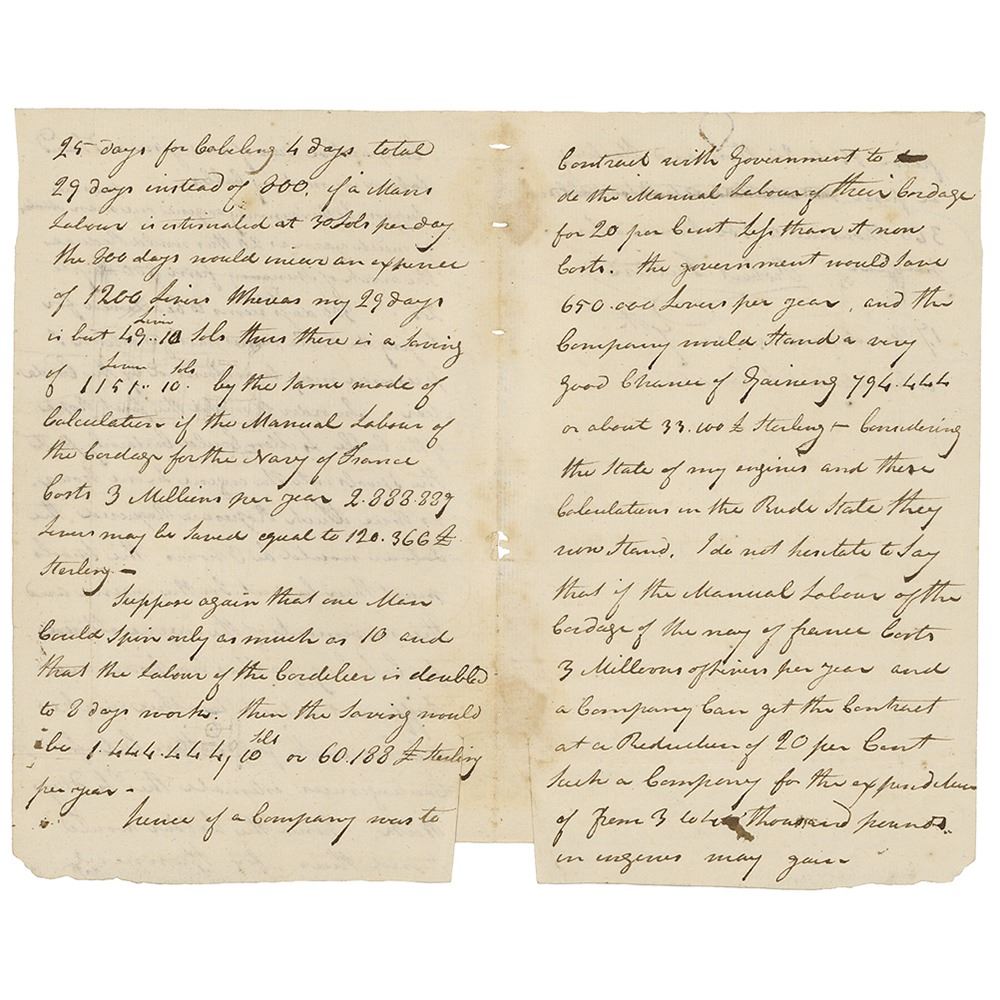 25 days for Cabeling 4 days total
29 days instead of 800. if a Mans
Labour is estimated at 30 Sols per day
the 800 days would incur an expence
of 1200 Livers Whereas my 29 days
Livers
is but 49..10 Sols thus there is a Saving
Livers Sols
of 1151.. 10. by the Same mode of
Calculation if the Manual Labour of
the Cordage for the Navy of France
Costs 3 Millions per year 2.888.889
Livers may be Saved equal to 120.366 £
Sterling –
Suppose again that one Man
Could Spin only as much as 10 and
that the Labour of the Cordelier is doubled
to 8 days work. then the Saving would
sols
be 1.444.444, 10 or 60.188 £ Sterling
per year –
hence if a Company was to
Contract with Government to
do the Manual Labour of their Cordage
for 20 per Cent Less than it now
Costs. the government would Save
650.000 Livers per year, and the
Company would Stand a very
good Chance of Gaineng 794.444
or about 33.100 £ Sterling – Considering
the State of my engines and these
Calculations in the Rude State they
now Stand. I do not hesitate to Say
that if the Manual Labour of the
Cordage of the navy of france Costs
3 Millions of Livers per year and
a Company Can get the Contract
at a Reduction of 20 per Cent
Such a Company for the expenditure
of From 3 to thousand pounds..
in engines may gain